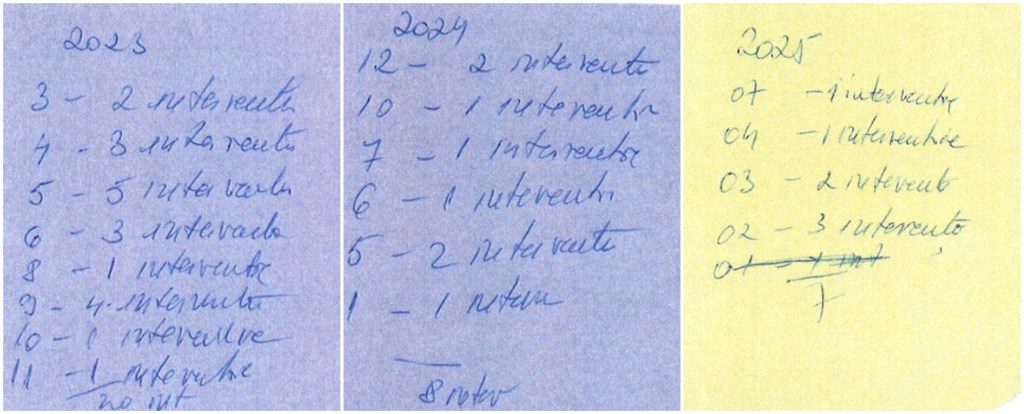 2023
3 - 2 interventii
4 - 3 interventii
5 - 5 interventii
6 - 3 interventii
8 - 1 interventie
9 - 4 interventii
10 - 1 interventie
11 - 1 interventie
20 int
2024
12 - 2 interventii
10 - 1 interventie
7 - 1 interventie
6 - 1 interventie
5 - 2 interventii
1 - 1 interv
8 interv
2025
07 - 1 interventie
04 - 1 interventie
03 - 2 interventii
02 - 3 interventii
01 - 1 int
7